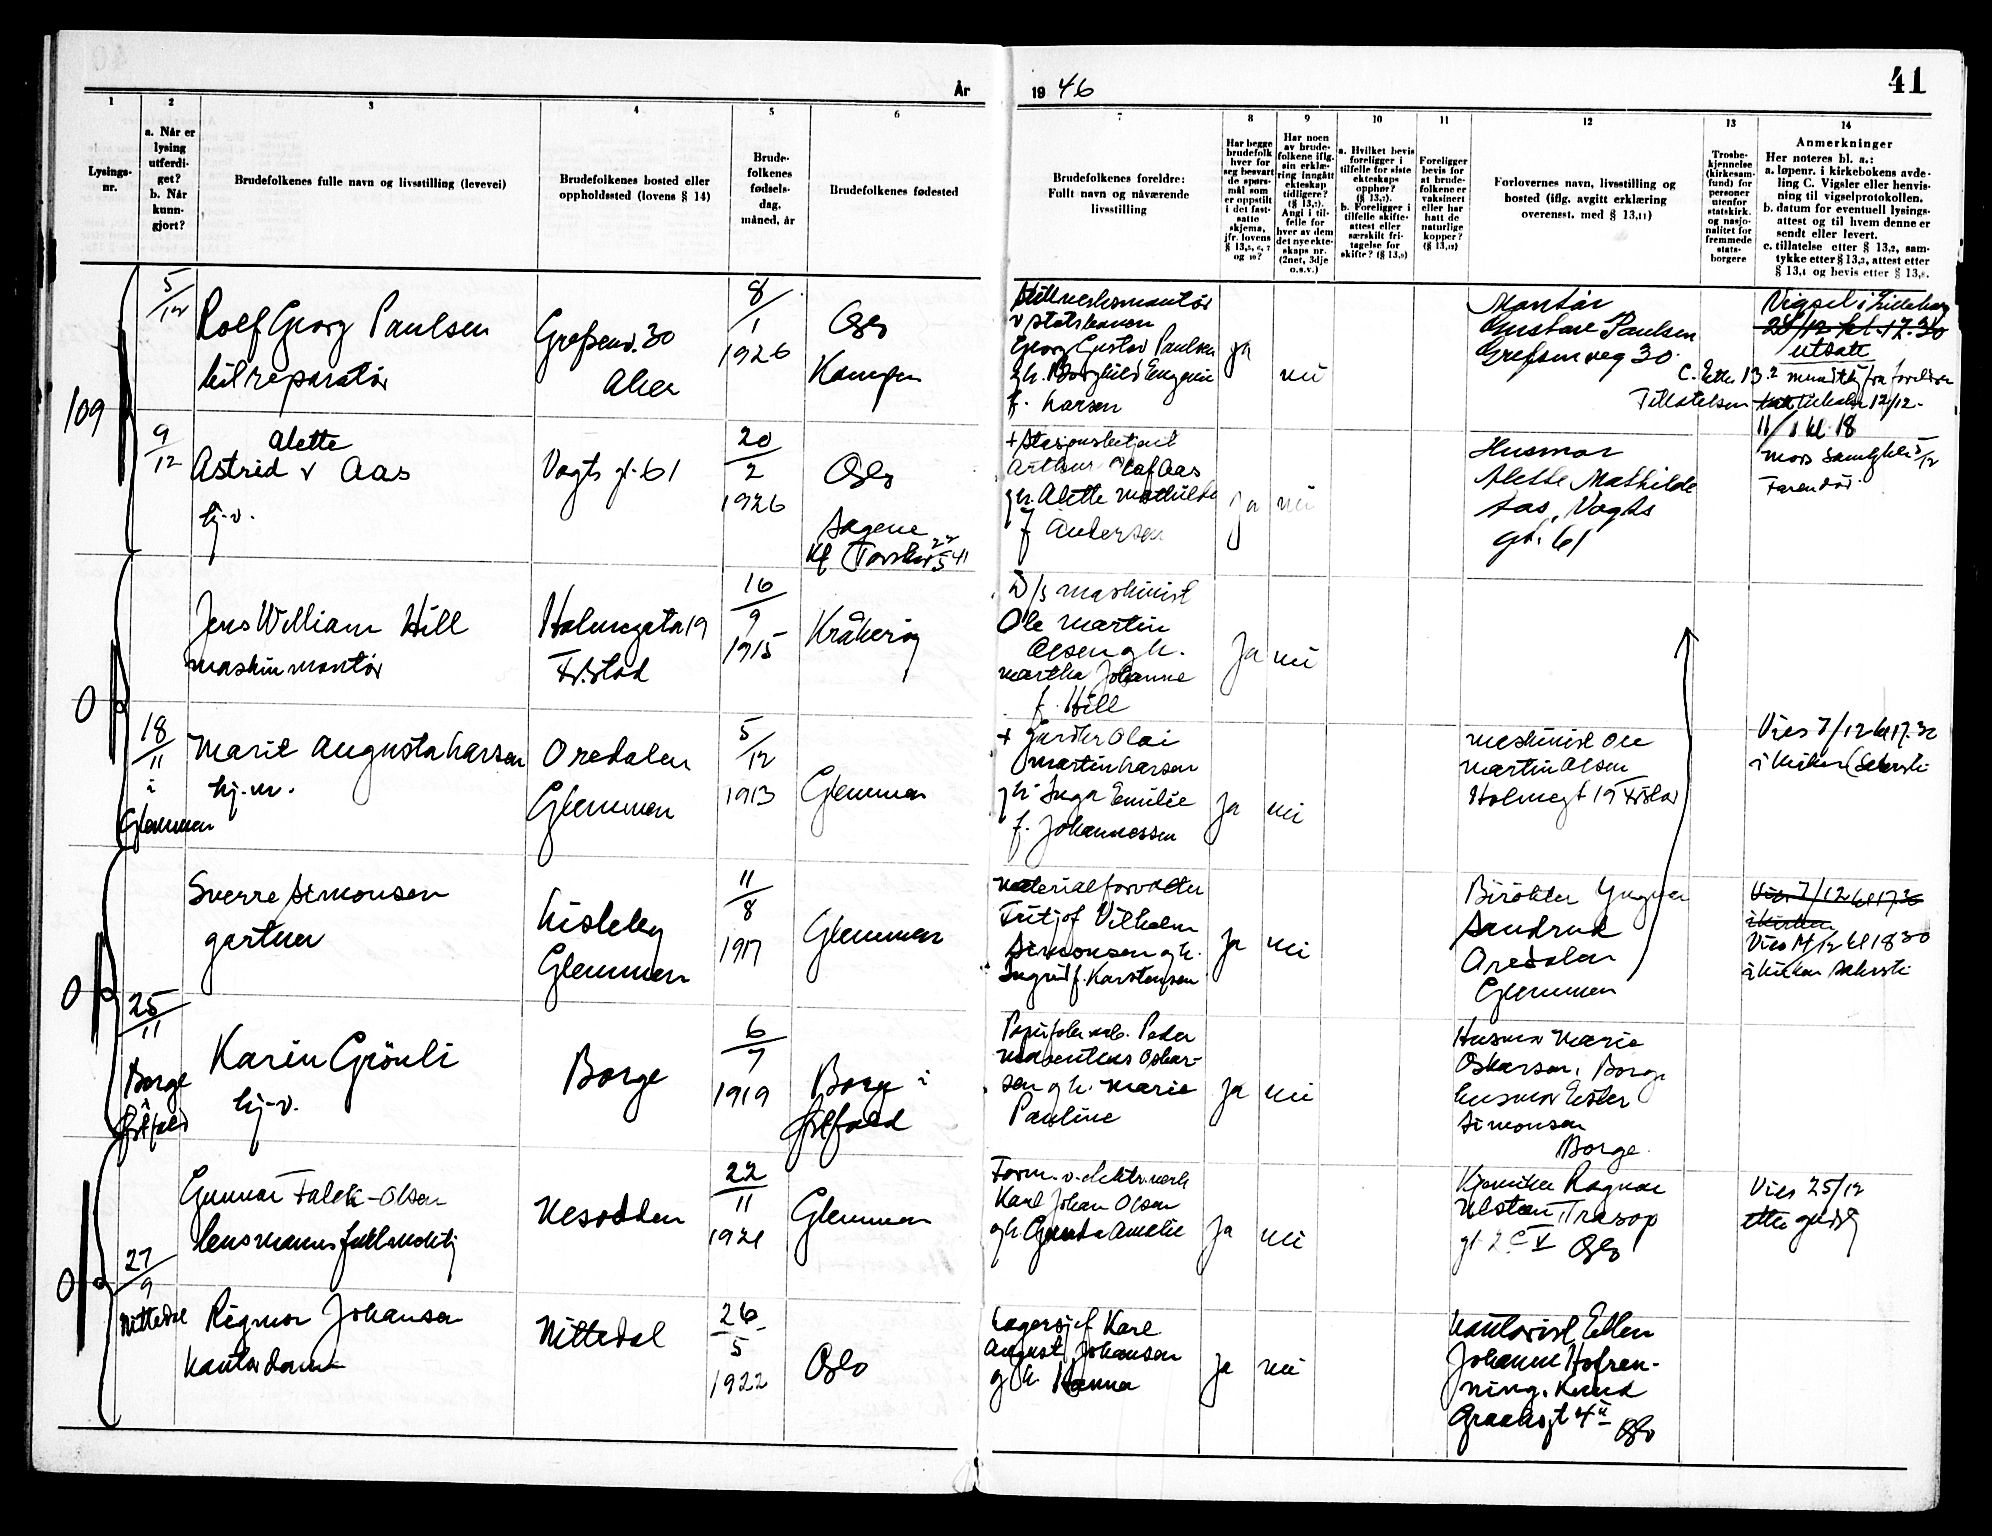 År 19 46
41
1
2
3
4
5
6
7
8
9
10
11
12
13
14
Lysings-
nr.
a. Når er
lysing
utferdi-
get?
b. Når
kunn-
gjort?
Brudefolkenes fulle navn og livsstilling (levevei)
Brudefolkenes bosted eller
oppholdssted (lovens § 14)
Brude-
folkenes
fødsels-
dag,
måned, år
Brudefolkenes fødested
Brudefolkenes foreldre:
Fullt navn og nåværende
livsstilling
Har begge
brudefolk
hver for
seg besvart
de spørs-
mål som
er oppstilt
i det fast-
satte
skjema,
jfr. lovens
§ 13,5, 6, 7
og 10?
Har noen
av brude-
folkene iflg.
sin erklæ-
ring inngått
ekteskap
tidligere?
(§ 13,7).
Angi i til-
felle for
hver av dem
det nye ekte-
skaps nr.
(2net, 3dje
o.s.v.)
a. Hvilket bevis
foreligger i
tilfelle for siste
ekteskaps
opphør?
(§ 13,7).
b. Foreligger i
tilfelle skifte-
attest eller
særskilt fri-
tagelse for
skifte? (§ 13,9)
Foreligger
bevis for
at brude-
folkene er
vaksinert
eller har
hatt de
naturlige
kopper?
(§ 13,12)
Forlovernes navn, livsstilling og
bosted (iflg. avgitt erklæring
overenst. med § 13,11)
Trosbe-
kjennelse
(kirkesam-
fund) for
personer
utenfor
statskirk.
og nasjo-
nalitet for
fremmede
stats-
borgere
Anmerkninger
Her noteres bl. a.:
a. løpenr. i kirkebokens avde-
ling C. Vigsler eller henvis-
ning til vigselprotokollen.
b. datum for eventuell lysings-
attest og til hvem denne er
sendt eller levert.
c. tillatelse etter § 13,2, sam-
tykke etter § 13,3, attest etter
§ 13,4 og bevis etter § 13,8.
109
5/12
Rolf Georg Paulsen
bilreparatør
Grefsenv. 30
Aker
8/1
1926
Oslo
Kampen
Stillverksmontør
v statsbanen
Georg Gustav Paulsen
g.h. Borghild Eugenie
f. Larsen
Ja
nei
Montør
Gustav Paulsen
Grefsenveg 30
Vigsel i
28/12 kl. 17.30
utsatt
C. Etter 13.2 muntlig fra foreldre
Tillatelsen 12/12.
11/1 kl. 18
9/12
Alette
Astrid v Aas
hj.v.
Vogts gt. 61
20/2
1926
Oslo
Sagene
Kf 22/5 41
+ Stasjonsbetjent
Arthur Olaf Aas
g.h. Alette Mathilde
f Andersen
Ja
nei
Husmor
Alette Mathilde
Aas, Vogts
gt. 61
mors
5/12
0
Jens William Hill
maskinmontør
Holmegata 19
Fr.stad
16/9
1915
Kråkerøy
D/s maskinist
Ole Martin
Olsen g.h.
Martha Johanne
f. Hill
Ja
nei
18/11
i
Glemmen
Marit Augusta Larsen
hj.m.
Oredalen
Glemmen
5/12
1913
Glemmen
+ Olai
Martin Larsen
g.h. Inga Emilie
f. Johannessen
Ja
nei
maskinist Ole
Martin Olsen
Holmegt 19 Fr.stad
Vies 7/12 kl 17.30
i kirken
0
Sverre Simonsen
gartner
Lisleby
Glemmen
11/8
1917
Glemmen
Materialforvalter
Fritjof Vilhelm
Simonsen g.h.
Ingrid f. Karstensen
Ja
nei
Birøkter Yngvar
Sandrud
Oredalen
Glemmen
Vies 7/12 kl 17.30
i kirken
Vies 14/12 kl 18 30
i kirken
25/11
Borge
i
Østfold
Karin Grönli
hj-v.
Borge
6/7
1919
Borge i
Østfold
Peder
Oskar-
sen g.h. Marie
Pauline
Ja
nei
Husmor Marie
Oskarsen, Borge
husmor Ester
Simonsen
Borge.
0
Gunnar Falck-Olsen
lensmannsfullmektig
Nesodden
22/11
1921
Glemmen
Form. v. elektr.verk
Karl Johan Olsen
g.h. Gunda Amelie
Ja
nei
Ragnar
Trasop
gt 2 C V Oslo
Vies 25/12
etter gudstj
27/9
Nittedal
Rigmor Johansen
kontordame
Nittedal
26/5
1922
Oslo
Lagersjef Karl
August Johansen
g.h. Hanna
Ja
nei
kontorist Ellen
Johanne Hofren-
ning. Knud
Graahsgt 4 II Oslo